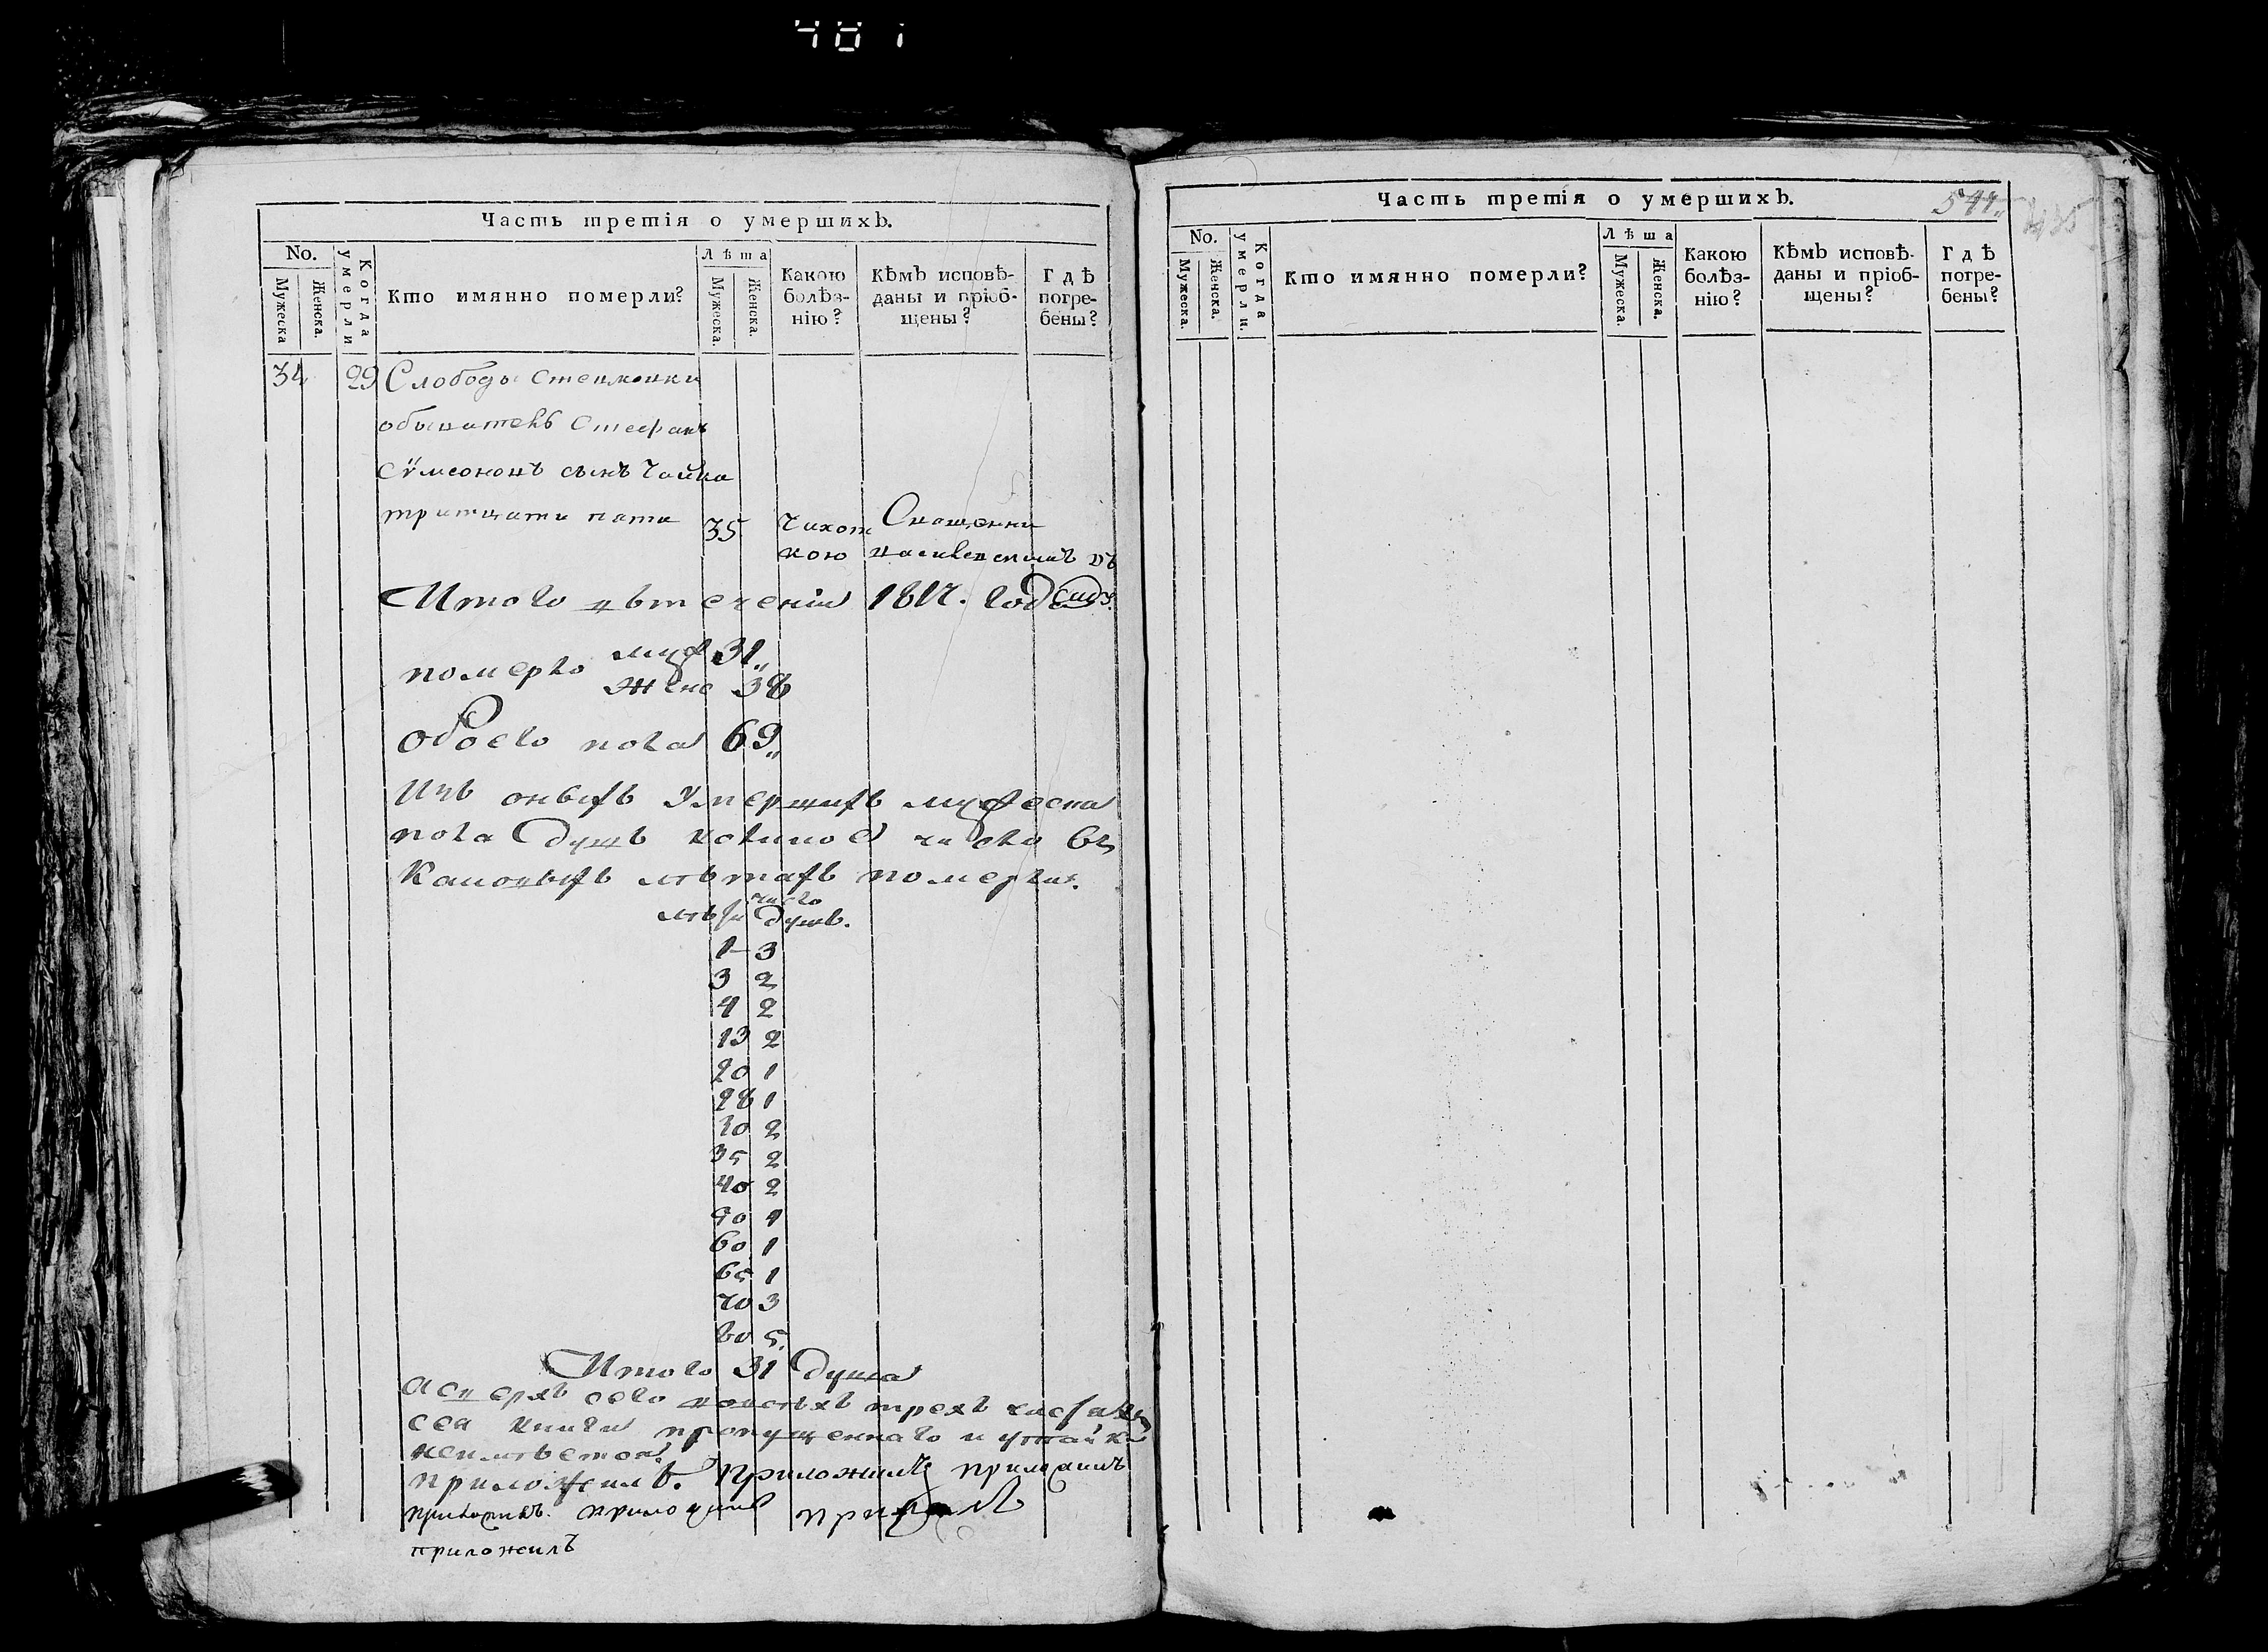 481
Часть третія о умершихъ.
No.
Мужеска
Женска.
Когда умерли
Кто имянно померли?
Лѣта
Мужеска.
Женска.
Какою болѣз-
нію?
Кѣмъ исповѣ-
даны и пріоб-
щены?
Гдѣ
погре-
бены?
34 29 Слободы
обыватель Стефанъ
сѵмеоновъ сынъ Чайка
тритцати пяти 35 Чихот
кою
Итого втеченіи 1817. года
померло муж 31
жено 38
обоего пола 69
Изъ оныхъ умершихъ мужеска
пола душъ коликое число въ
каковыхъ лѣтахъ померли.
лѣта число душъ.
1 3
3 2
4 2
13 2
20 1
28 1
30 2
35 2
40 2
50 1
60 1
65 1
70 3
80 5
Итого 31 душа
сверхъ сего вовсѣхъ трехъ частяхъ
сея книги пропущеннаго и утайки
неимѣется.
приложилъ. приложилъ приложилъ
приложилъ. приложилъ
приложилъ
Часть третія о умершихъ.
541
No.
Мужеска.
Женска.
Когда умерли.
Кто имянно померли?
Лѣта
Мужеска.
Женска.
Какою
болѣз-
нію?
Кѣмъ исповѣ-
даны и пріоб-
щены?
Гдѣ
погре-
бены?